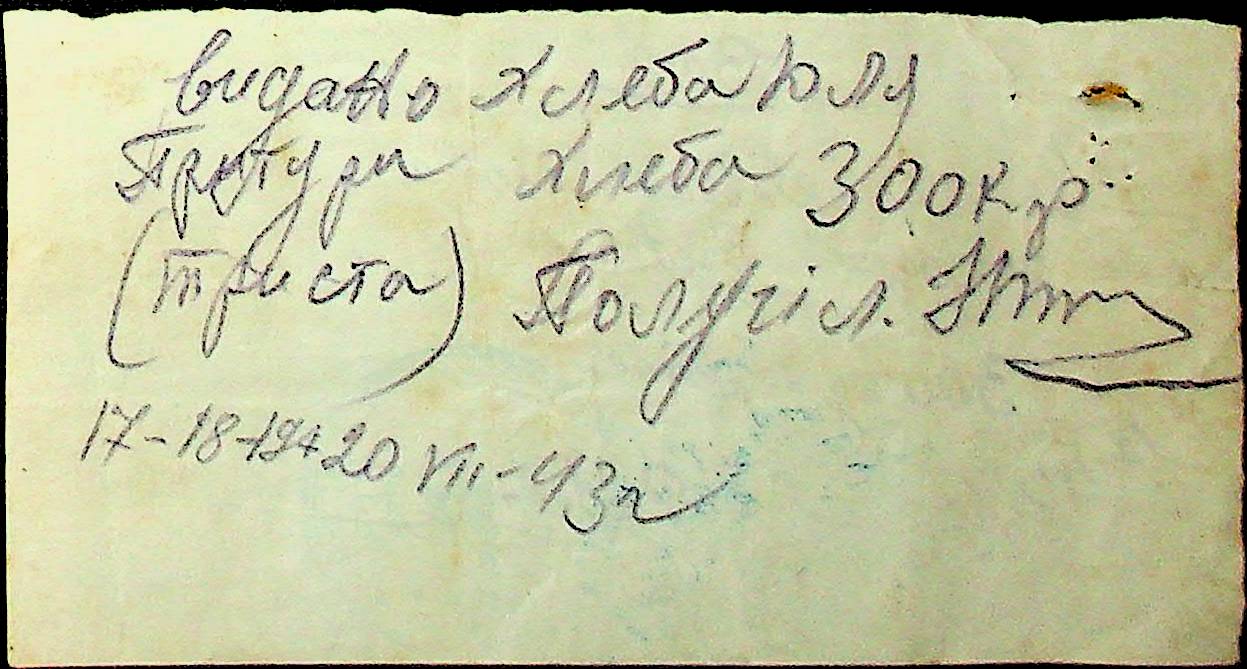 видано хлеба Юля
Претура хлеба 300 кр
(триста) Получіл.
17-18-19+20 VII-43г